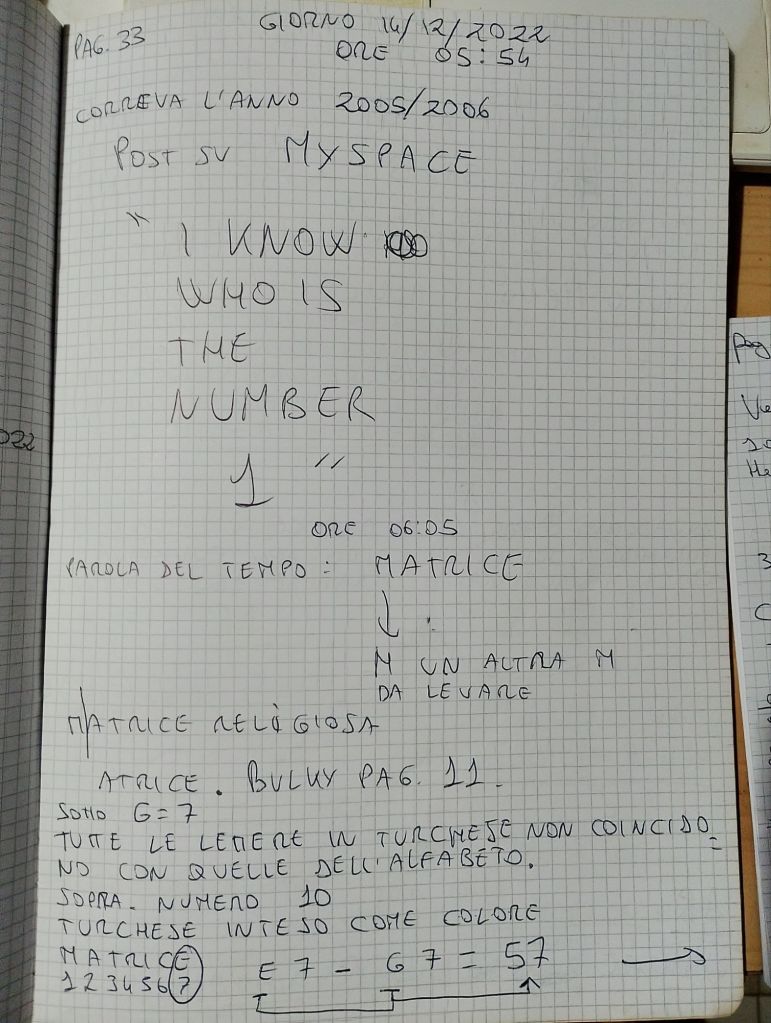 PAG. 33
GIORNO 14/12/2022
ORE 05:54
CORREVA L'ANNO 2005/2006
POST SU MYSPACE
" I KNOW
WHO IS
THE
NUMBER
1 "
ORE 06:05
PAROLA DEL TEMPO: MATRICE
↓
M UN ALTRA M
DA LEVARE
MATRICE RELIGIOSA
ATRICE. BULKY PAG. 11.
SOTTO G=7
TUTTE LE LETTERE IN TURCHESE NON COINCIDO=
NO CON QUELLE DELL'ALFABETO.
SOPRA. NUMERO 10
TURCHESE INTESO COME COLORE
MATRICE
1234567
E7 - G7 = 57 →
022